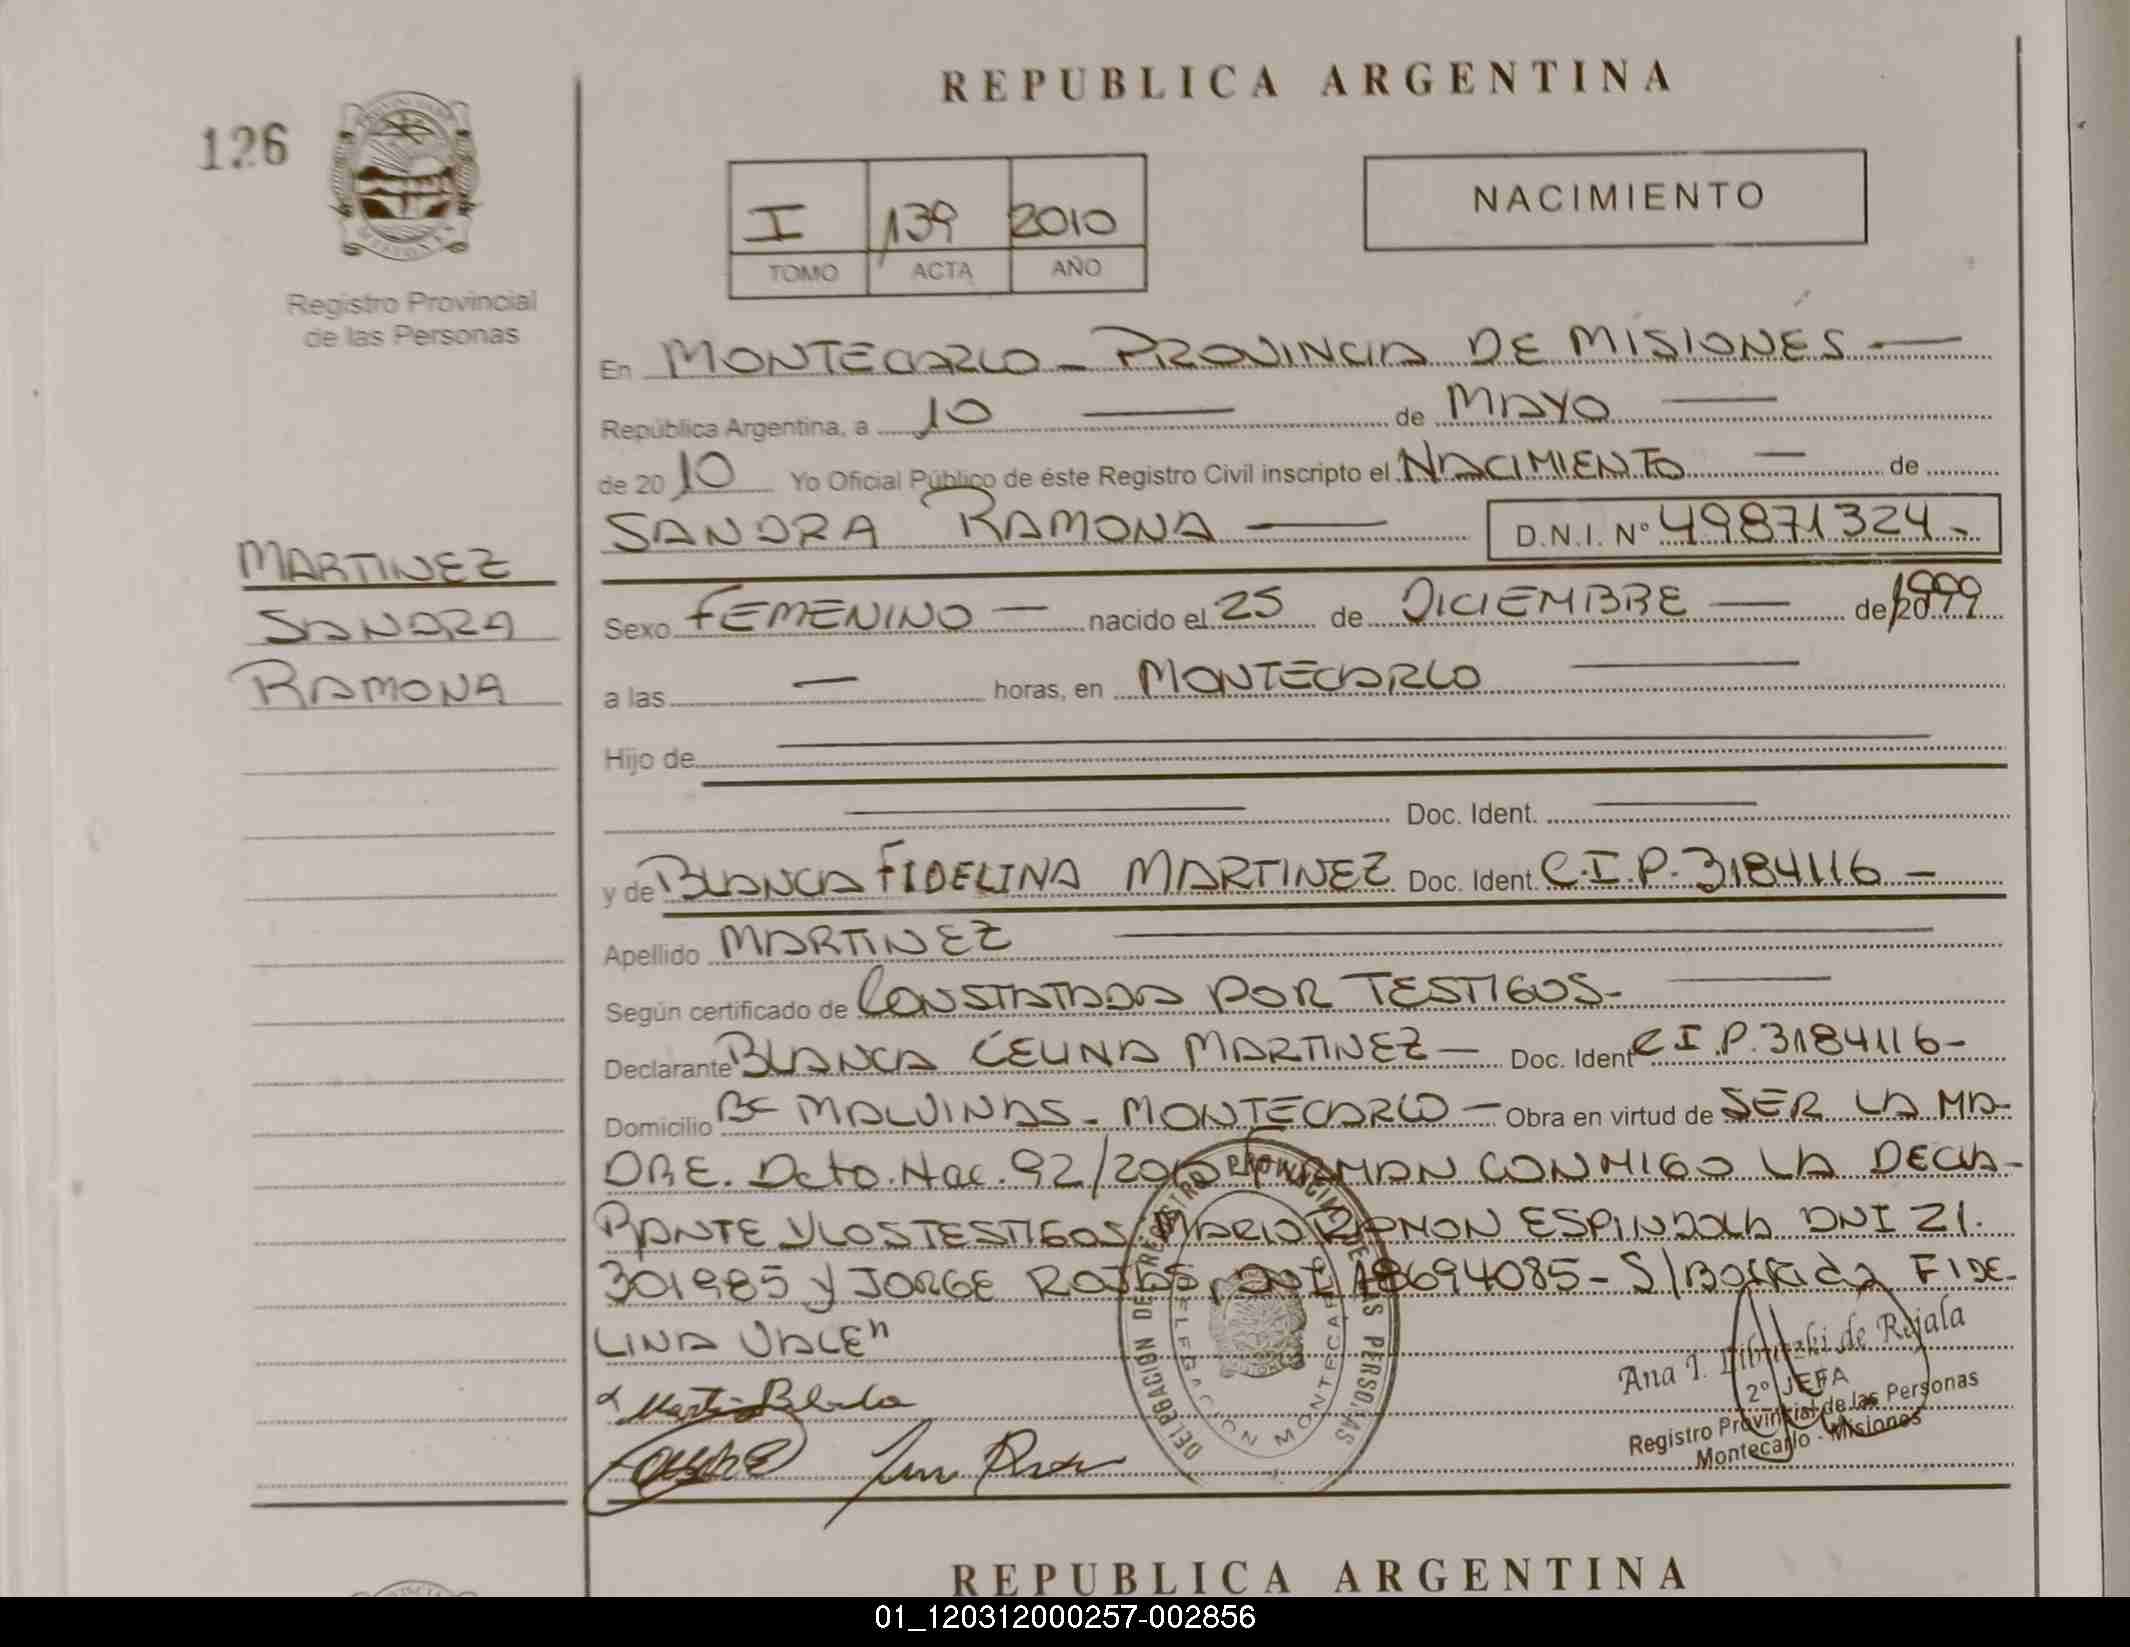 REPUBLICA ARGENTINA
126
I 139 2010
TOMO ACTA AÑO
NACIMIENTO
Registro Provincial
de las Personas
MARTINEZ
SANDRA
RAMONA
En MONTECARLO - PROVINCIA DE MISIONES —
República Argentina, a 10 — de MAYO —
de 2010 Yo Oficial Público de éste Registro Civil inscripto el NACIMIENTO — de
SANDRA RAMONA — D.N.I. Nº 49871324-
Sexo FEMENINO — nacido el 25 de DICIEMBRE — de 1999
a las — horas, en MONTECARLO —
Hijo de —
— Doc. Ident. —
y de BLANCA FIDELINA MARTINEZ Doc. Ident. C.I.P. 3184116 -
Apellido MARTINEZ —
Según certificado de CONSTATADA POR TESTIGOS- —
Declarante BLANCA CELINA MARTINEZ — Doc. Ident C I .P. 3184116-
Domicilio Bº MALVINAS - MONTECARLO — Obra en virtud de SER LA MA-
DRE. Dcto. Nac. 92/2010 FIRMAN CONMIGO LA DECLA-
RANTE Y LOS TESTIGOS MARIO RAMON ESPINDOLA DNI 21.
301985 y JORGE ROJAS, DNI 18694085- S/Borrado FIDE-
LINA VALE"
DELEGACION DE REGISTRO PROVINCIAL DE LAS PERSONAS
DELEGACION MONTECARLO
Ana I. de Rojala
2º JEFA
Registro Provincial de las Personas
Montecarlo - Misiones
REPUBLICA ARGENTINA
01_120312000257-002856